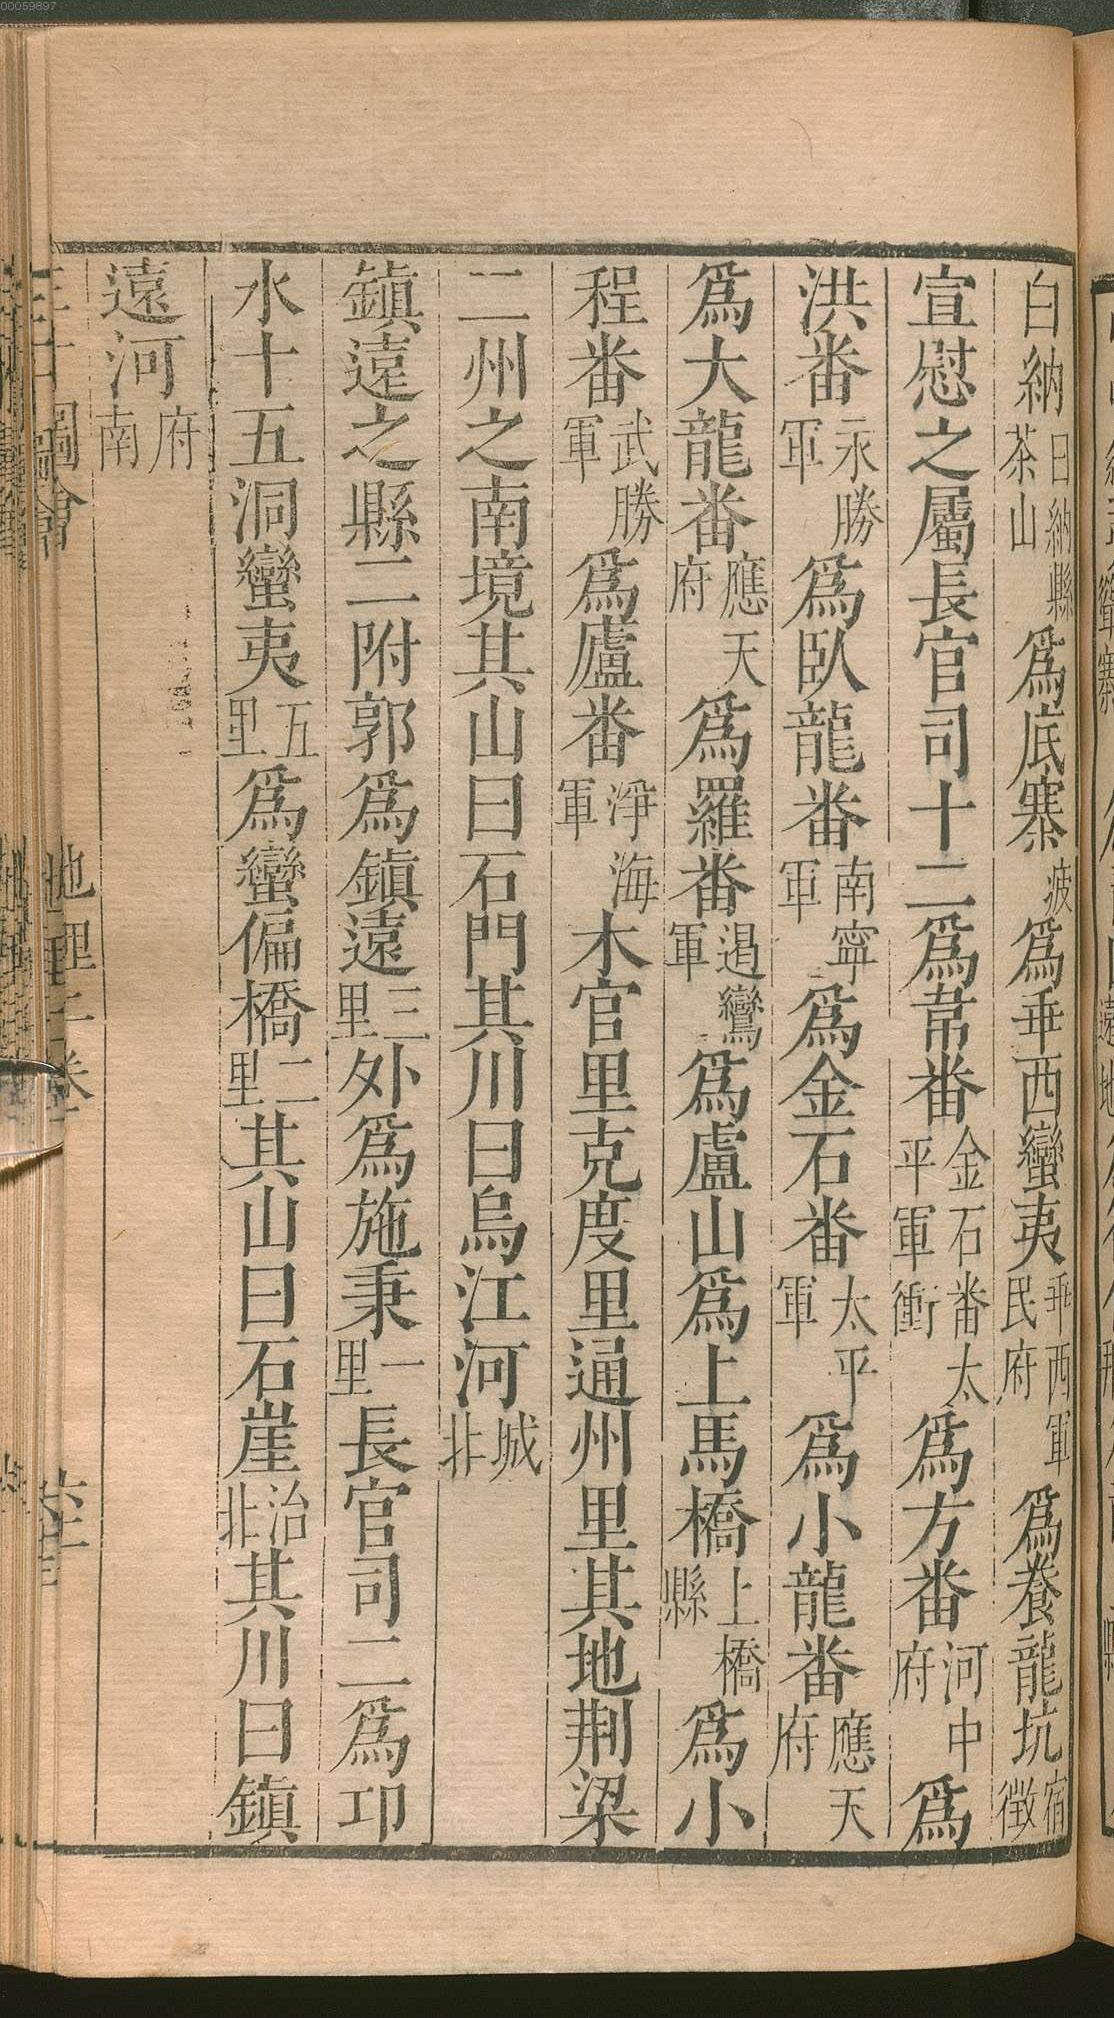 白納白納縣茶山為底寨疲為乖西蠻夷乖西軍民府為養龍坑宿徴
宣慰之屬長官司十二為常番金石番太平軍衝為方番河中府為
洪番永勝軍為臥龍番南寧軍為金石番太平軍為小龍番應天府
為大龍番應天府為羅番遏鸞軍為盧山為上馬橋上橋縣為小
程番武勝軍為廬番淨海軍木官里克度里通州里其地荆梁
二州之南境其山曰石門其川曰烏江河城非
鎮遠之縣二附郭為鎮遠三里外為施秉一里長官司二為卭
水十五洞蠻夷五里為蠻偏橋二里其山曰石崖治非其川曰鎮
遠河府南
三才圖會
地理二卷
00059897